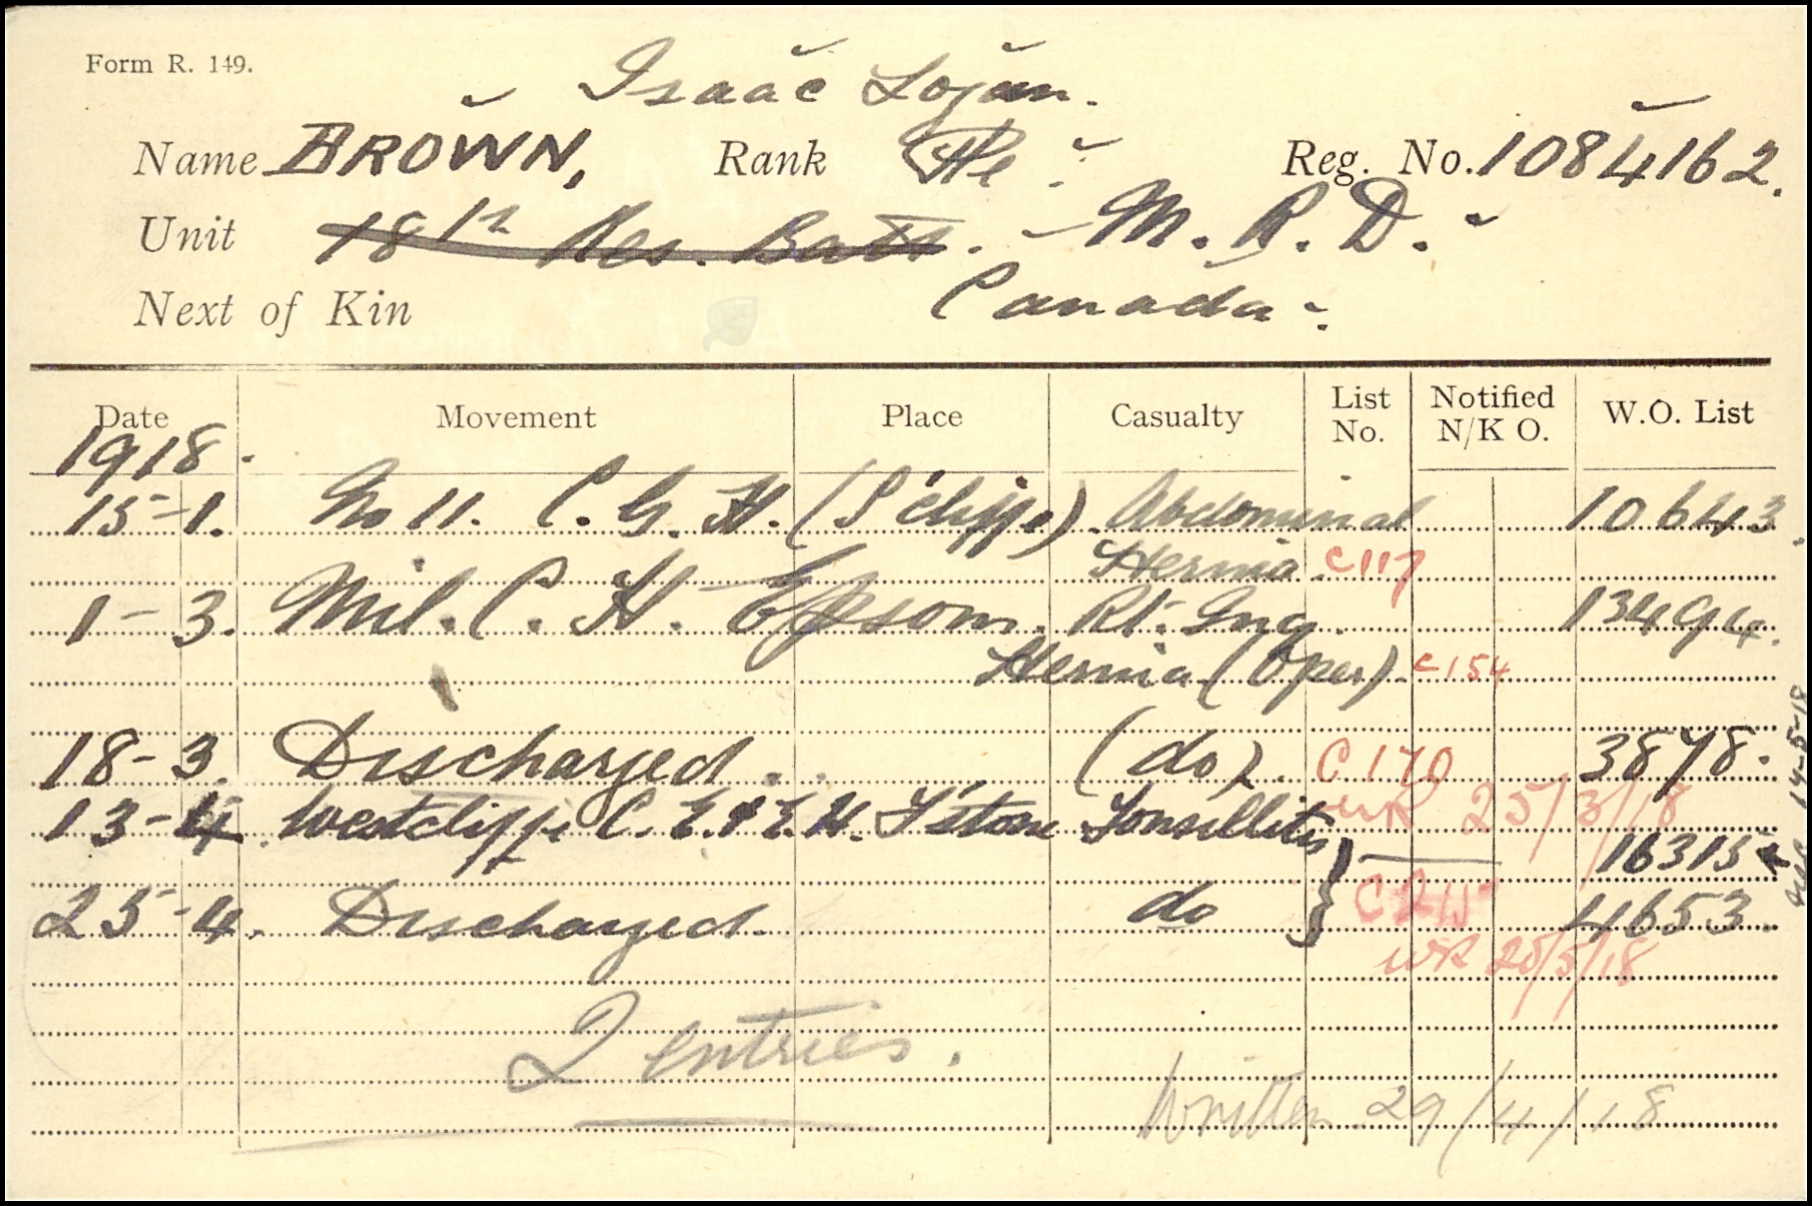 Form R. 149.
Isaac Logan.
Name BROWN, Rank Pte. Reg. No. 1084162.
Unit 18th Res. Battn. - M. R. D.
Next of Kin Canada.
Date Movement Place Casualty List No. Notified N/K O. W.O. List
1918.
15-1. No 11. C. G. H. (S'cliffe). Abdominal 10643.
Hernia. C117
1-3. Mil. C. H. Epsom. Rt. Ing. 13494.
Hernia (Oper). C154
18-3. Discharged. (do). C170 3878.
WR 25/3/18
13-4. Westcliffe C. E. & E. H. F'stone Tonsillitis 16315
25-4. Discharged. do C 215 4653.
WR 25/5/18
14-5-18
2 entries.
Written 29/4/18